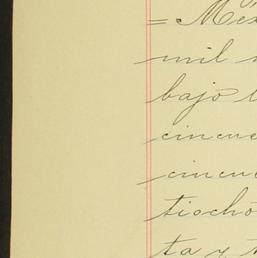 = Méx
mil
bajo
cincue
cincu
tiocho
ta y t